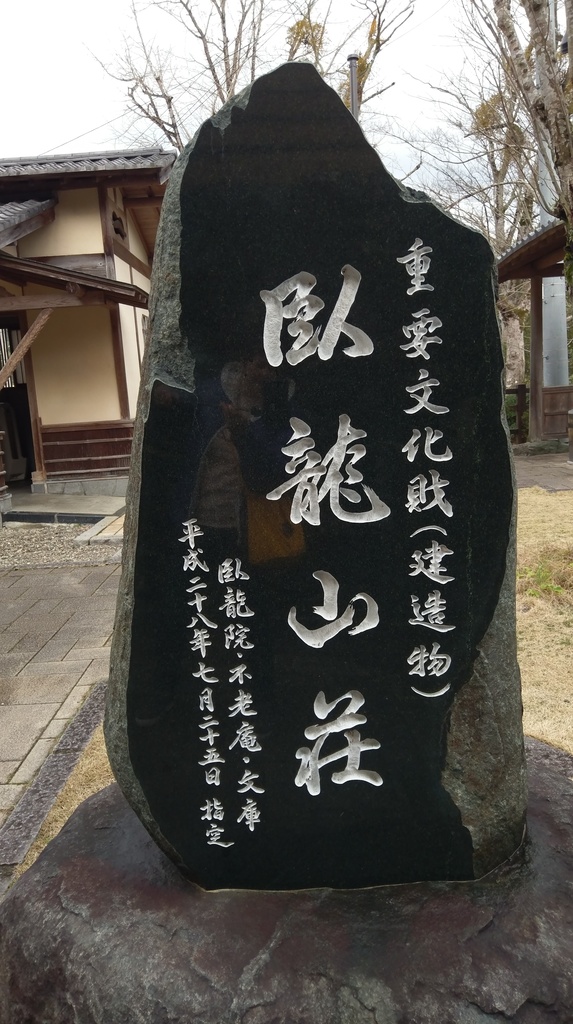 重要文化財(建造物)
臥龍山荘
臥龍院・不老庵・文庫
平成二十八年七月二十五日 指定